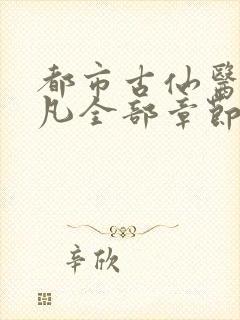 都市古仙醫
凡全部章節
辛欣